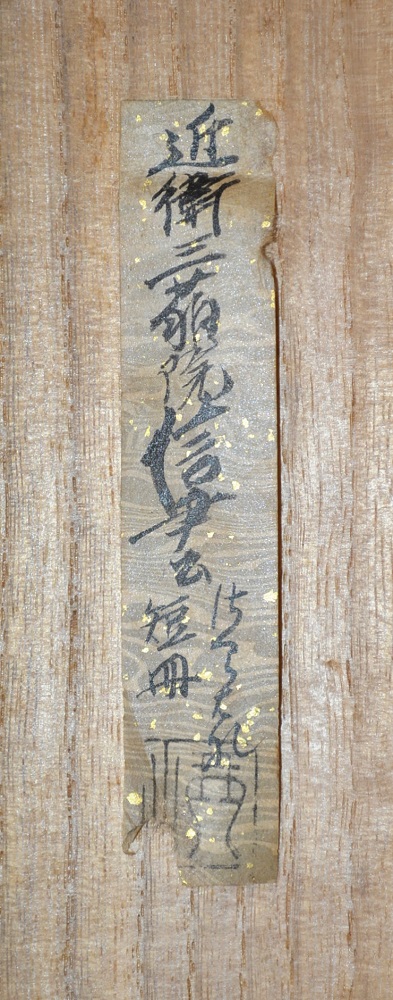 近衛三藐院信尹公
短冊